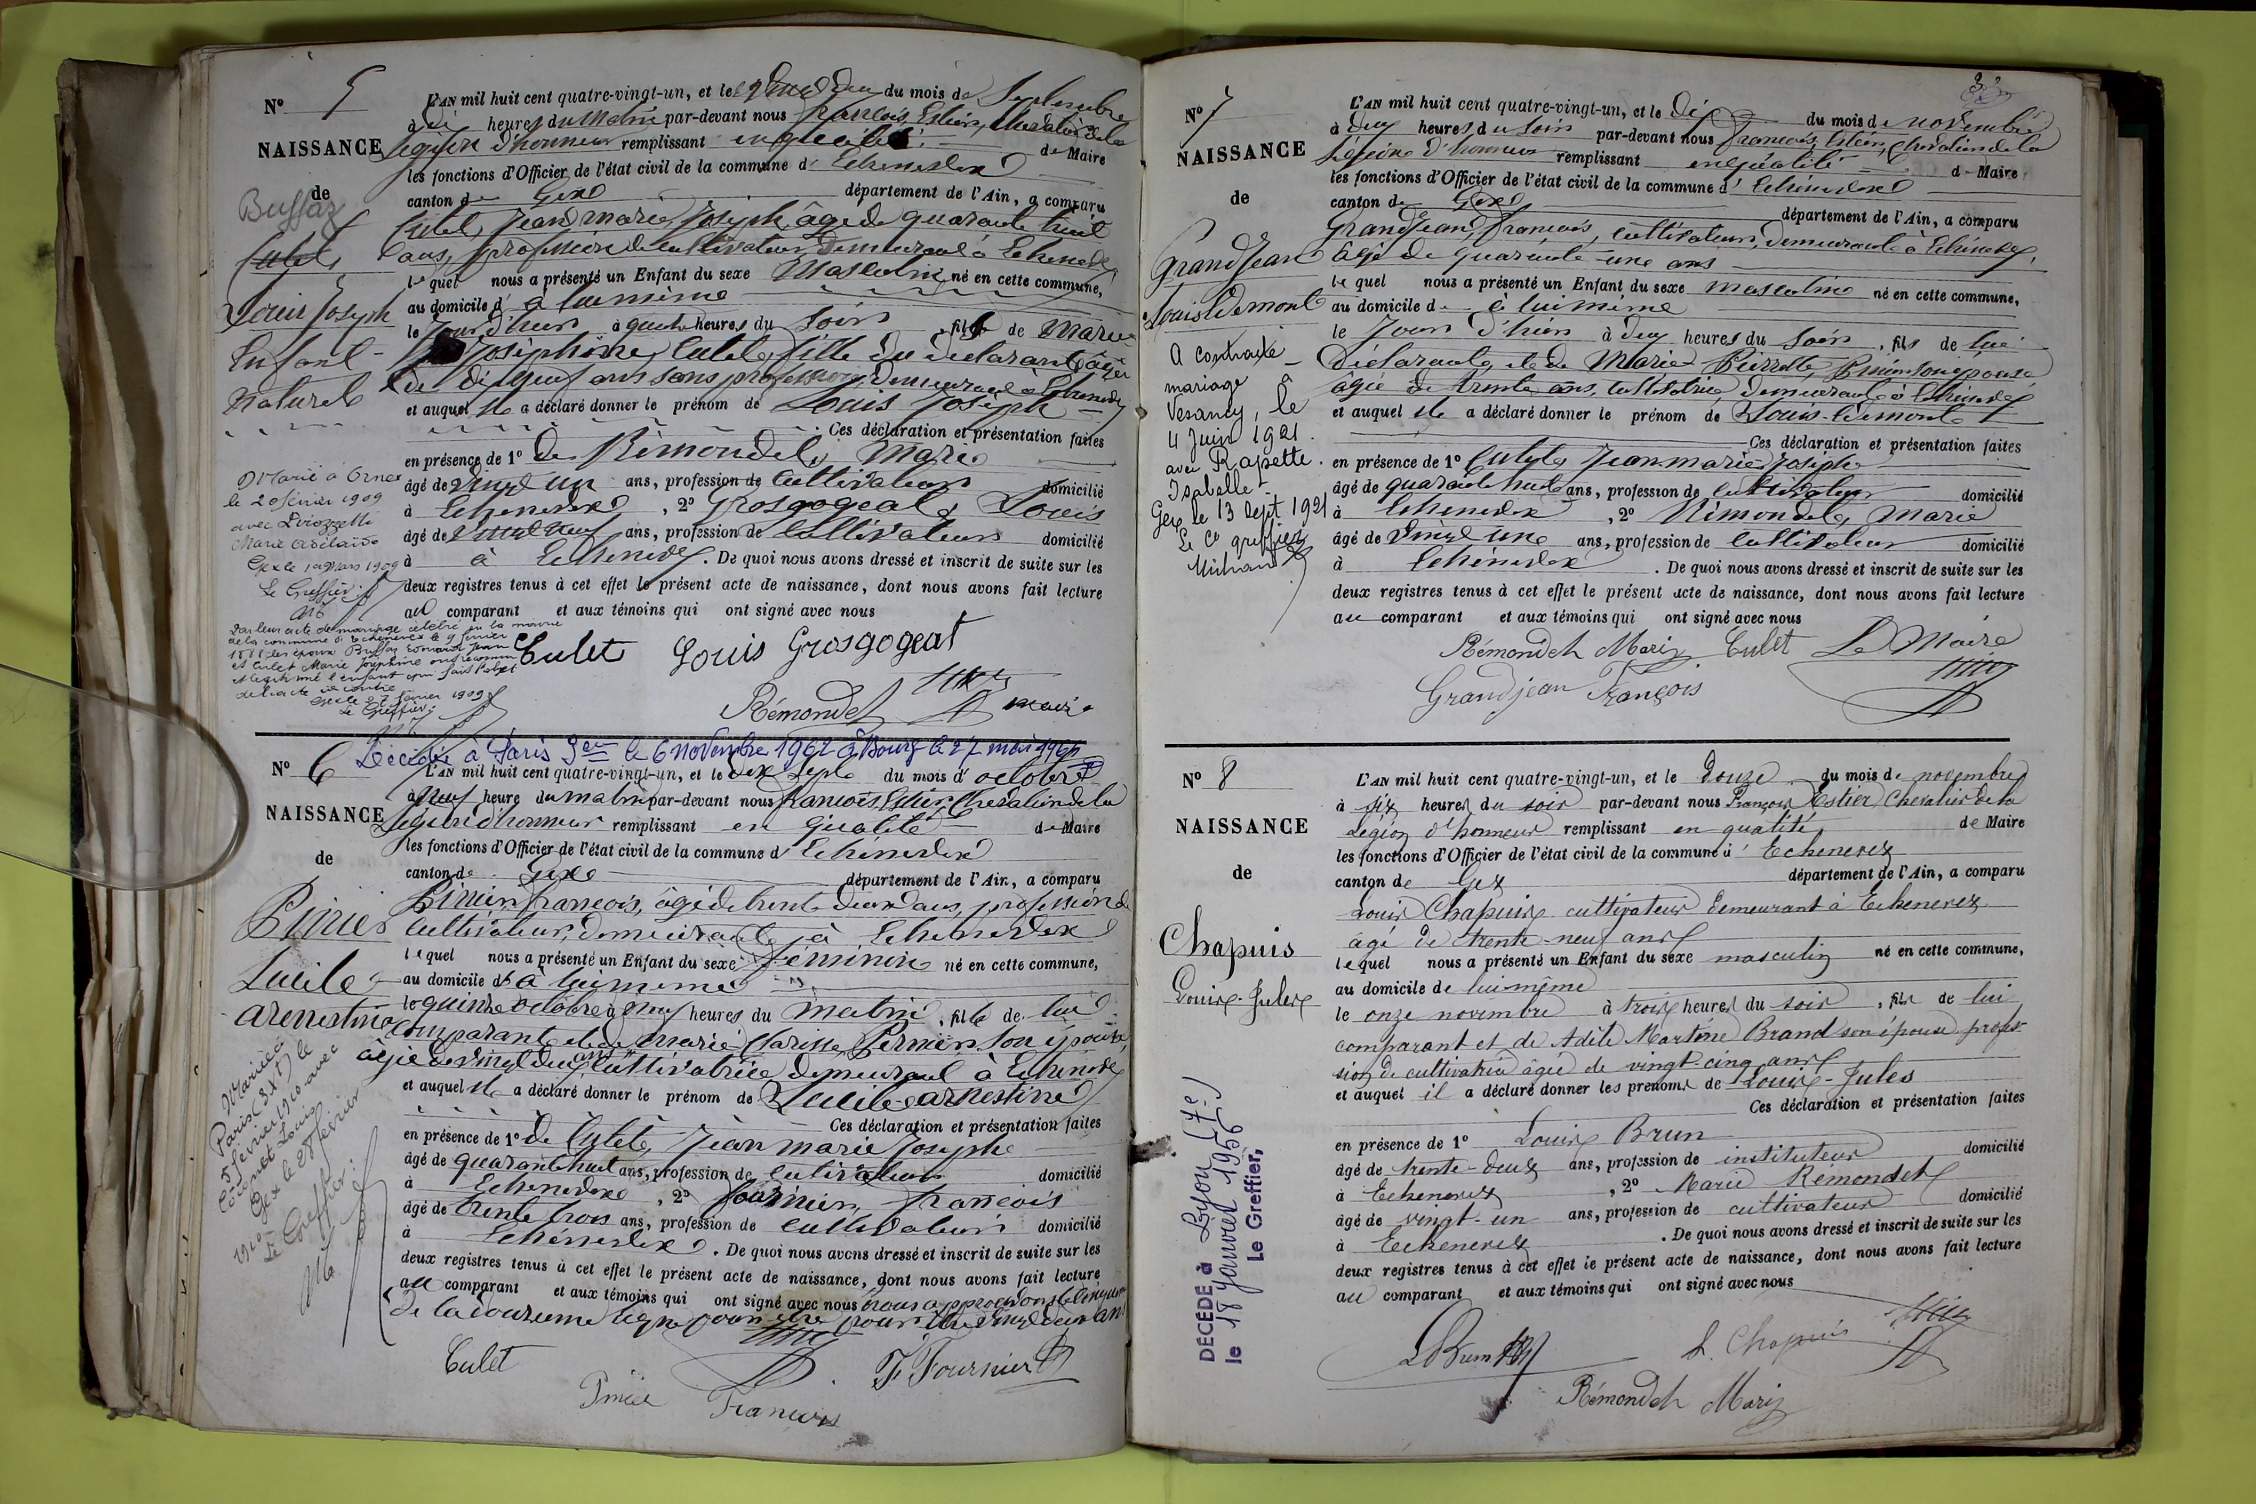 N° 5
NAISSANCE
de
Buffaz
Culet
Louis Joseph
Enfant
naturel
L'AN mil huit cent quatre-vingt-un, et le du mois de Septembre
à dix heures du Matin par-devant nous François Estier, Chevalier de la
Légion d'honneur remplissant en qualité de Maire
les fonctions d'Officier de l'état civil de la commune d' Echenevex
canton de Gex département de l'Ain, a comparu
Culet Jean marie Joseph âgé de quarante huit
ans, profession de cultivateur, demeurant à Echenevex
lequel nous a présenté un Enfant du sexe Masculin né en cette commune,
au domicile d à lui même
le jour d'hier à quatre heures du soir, fils de Marie
Joséphine Culet, fille du déclarant âgée
de dix neuf ans sans profession demeurant à Echenevex
et auquel il a déclaré donner le prénom de Louis Joseph
Ces déclaration et présentation faites
en présence de 1° de Rémondet Marie
âgé de vingt un ans, profession de Cultivateur domicilié
à Echenevex, 2° Grosgogeat Louis
âgé de vingt neuf ans, profession de Cultivateur domicilié
à à Echenevex. De quoi nous avons dressé et inscrit de suite sur les
deux registres tenus à cet effet le présent acte de naissance, dont nous avons fait lecture
au comparant et aux témoins qui ont signé avec nous
Marié à Ornex
le 20 février 1909
avec
Marie Adélaïde
Gex le 1er Mars 1909
Le Greffier
Par leur acte de mariage célébré en la mairie
de la commune d'Echenevex le 9 février
les époux Buffaz Edouard Jean
et Culet Marie Joséphine ont reconnu
et légitimé l'enfant qui fait l'objet
de l'acte ci contre
Gex le 27 février 1909
Le Greffier
Culet Louis Grosgogeat
Rémondet maire
Décédée à Paris 9e le 6 novembre 1962 Bourg le 27 mai 1964
N° 6
NAISSANCE
de
Prinier
Lucile
arnestine
L'AN mil huit cent quatre-vingt-un, et le dix Sept du mois d' octobre
à neuf heure du matin par-devant nous François Estier, Chevalier de la
Légion d'honneur remplissant en qualité de Maire
les fonctions d'Officier de l'état civil de la commune d' Echenevex
canton de Gex département de l'Ain, a comparu
François, âgé de trente deux ans, profession de
cultivateur, demeurant à Echenevex
lequel nous a présenté un Enfant du sexe féminin né en cette commune,
au domicile d à lui même
le quinze octobre à neuf heures du matin, fille de lui
comparant et de marie Clarisse Pernier son épouse,
âgée de vingt deux ans cultivatrice demeurant à Echenevex
et auquel il a déclaré donner le prénom de Lucile arnestine
Ces déclaration et présentation faites
en présence de 1° de Culet, Jean marie Joseph
âgé de quarante huit ans, profession de cultivateur domicilié
à Echenevex, 2° fournier, françois
âgé de trente trois ans, profession de cultivateur domicilié
à Echenevex. De quoi nous avons dressé et inscrit de suite sur les
deux registres tenus à cet effet le présent acte de naissance, dont nous avons fait lecture
au comparant et aux témoins qui ont signé avec nous nous approuvons
de la douzième ligne pour être vingt deux ans
Mariée à
Paris le
5 février 1910 avec
Louis
Gex le 28 février
1910
Le Greffier
Culet F. Fournier
François
33
N° 7
NAISSANCE
de
GrandJean
Louis Edmont
L'AN mil huit cent quatre-vingt-un, et le Dix du mois de novembre
à deux heures du soir par-devant nous François Estier, Chevalier de la
Légion d'honneur remplissant en qualité de Maire
les fonctions d'Officier de l'état civil de la commune d' Echenevex
canton de Gex département de l'Ain, a comparu
GrandJean, François, cultivateur, demeurant à Echenevex,
âgé de quarante-une ans
lequel nous a présenté un Enfant du sexe masculin né en cette commune,
au domicile de à lui même
le Jour d'hier à deux heures du soir, fils de lui
déclarant, et de Marie Pierrette son épouse
âgée de trente ans, cultivatrice, demeurant à Echenevex
et auquel il a déclaré donner le prénom de Louis-Edmont
Ces déclaration et présentation faites
en présence de 1° Culet, Jean-marie Joseph
âgé de quarante huit ans, profession de cultivateur domicilié
à Echenevex, 2° Rémondet, Marie
âgé de vingt une ans, profession de cultivateur domicilié
à Echenevex. De quoi nous avons dressé et inscrit de suite sur les
deux registres tenus à cet effet le présent acte de naissance, dont nous avons fait lecture
au comparant et aux témoins qui ont signé avec nous
A contracté
mariage à
Vesancy, le
4 juin 1921
avec Rapette
Isabelle
Gex le 13 sept 1921
Le Cs greffier
Rémondet Marie Culet Le Maire
Grandjean François
N° 8
NAISSANCE
de
Chapuis
Louis-Jules
L'AN mil huit cent quatre-vingt-un, et le Douze du mois de novembre
à six heures du soir par-devant nous François Estier Chevalier de la
Légion d'honneur remplissant en qualité de Maire
les fonctions d'Officier de l'état civil de la commune d' Echenevex
canton de Gex département de l'Ain, a comparu
Louis Chapuis cultivateur demeurant à Echenevex
âgé de trente-neuf ans
lequel nous a présenté un Enfant du sexe masculin né en cette commune,
au domicile de lui-même
le onze novembre à trois heures du soir, fils de lui
comparant et de Adèle Martine Brand son épouse profes-
sion de cultivatrice âgée de vingt-cinq ans
et auquel il a déclaré donner les prénoms de Louis-Jules
Ces déclaration et présentation faites
en présence de 1° Louis Brun
âgé de trente-deux ans, profession de instituteur domicilié
à Echenevex, 2° Marie Rémondet
âgé de vingt-un ans, profession de cultivateur domicilié
à Echenevex. De quoi nous avons dressé et inscrit de suite sur les
deux registres tenus à cet effet le présent acte de naissance, dont nous avons fait lecture
au comparant et aux témoins qui ont signé avec nous
DÉCÉDÉ à Lyon (7e)
le 18 janvier 1956
Le Greffier,
L Brun L. Chapuis
Rémondet Marie